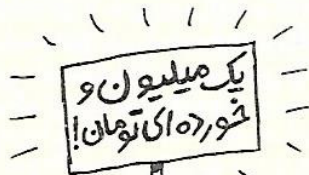 یک میلیون و
خورده‌ای تومان!